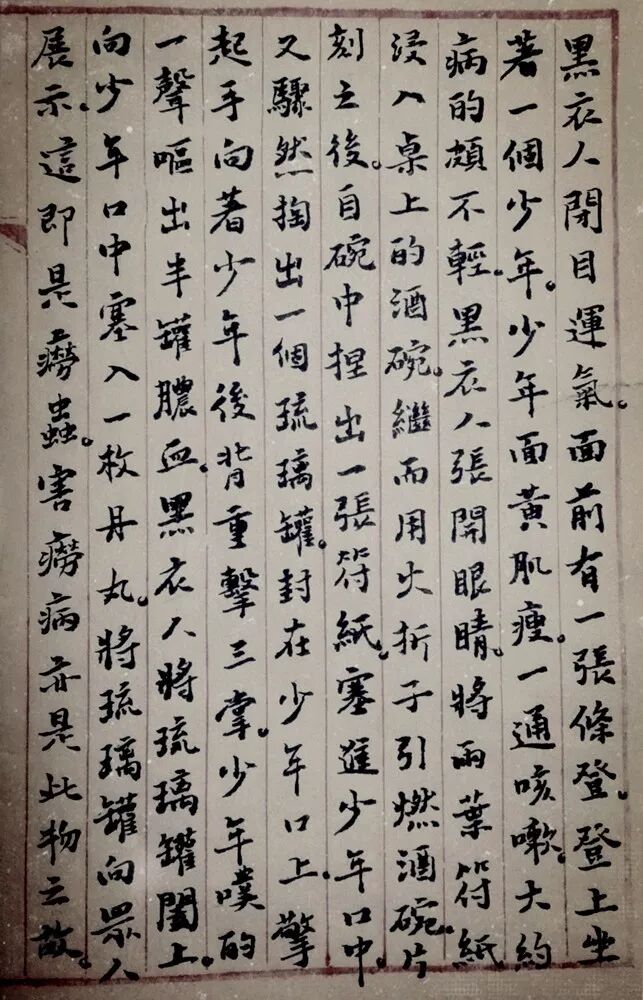 黑衣人閉目運氣。面前有一張條登。登上坐
著一個少年。少年面黃肌瘦。一通咳嗽。大約
病的頗不輕。黑衣人張開眼睛。將兩葉符紙
浸入桌上的酒碗。繼而用火折子引燃酒碗。片
刻之後。自碗中捏出一張符紙。塞進少年口中。
又驟然掏出一個琉璃罐。封在少年口上。擎
起手向著少年後背重擊三掌。少年噗的
一聲嘔出半罐膿血。黑衣人將琉璃罐闔上。
向少年口中塞入一枚丹丸。將琉璃罐向眾人
展示。這即是癆蟲。害癆病亦是此物之故。